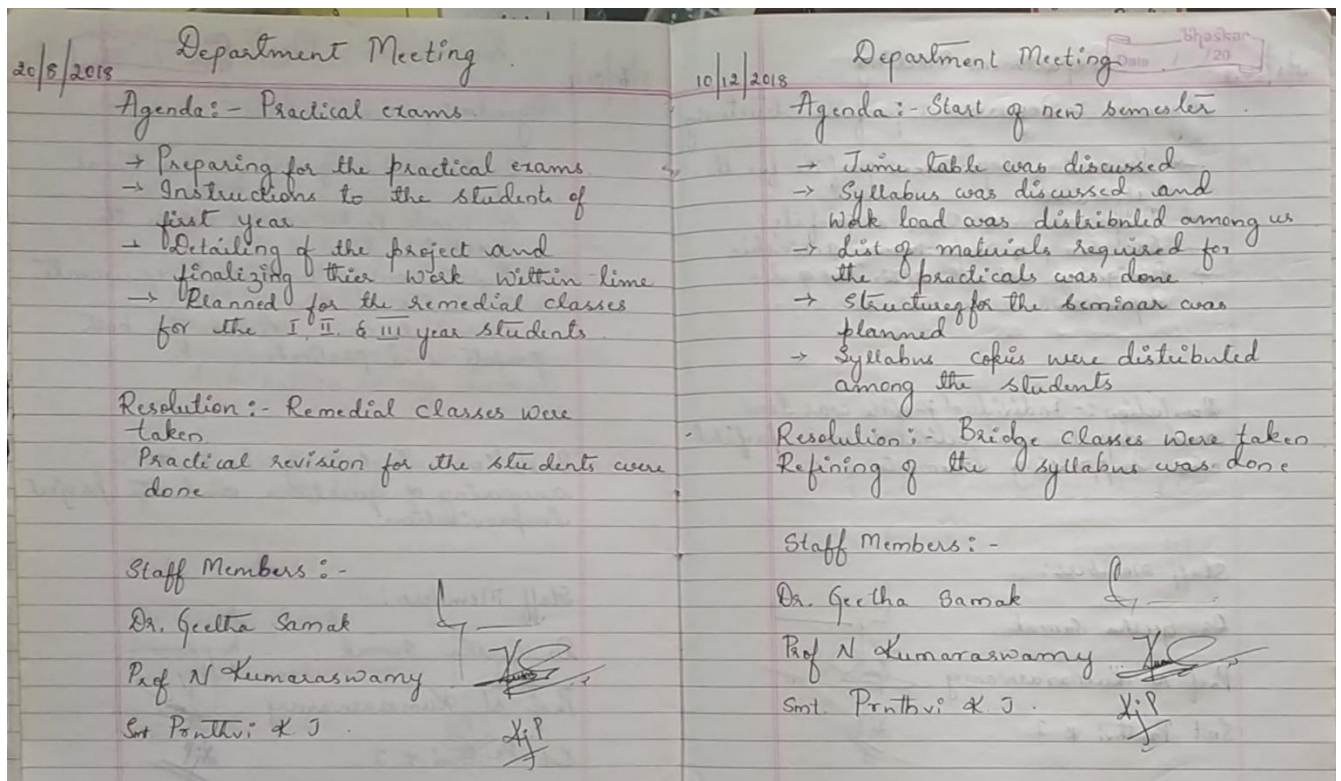 Department Meeting
20/8/2018
Agenda:- Practical exams
→ Preparing for the practical exams
→ Instructions to the students of
first year
→ Detailing of the project and
finalizing thier work within time
→ Planned for the remedial classes
for the I, II & III year students.
Resolution:- Remedial classes were
taken
Practical revision for the students were
done
Staff Members:-
Dr. Geetha Samak
Prof N Kumaraswamy
Smt Pruthvi K J.
bhaskar
Date / /20
Department Meeting
10/12/2018
Agenda:- Start of new semester.
→ Time table was discussed
→ Syllabus was discussed and
Work load was distributed among us
→ List of materials required for
the practicals was done
→ Structure for the seminar was
planned
→ Syllabus copies were distributed
among the students
Resolution:- Bridge classes were taken
Refining of the syllabus was done
Staff Members:-
Dr. Geetha Samak
Prof N Kumaraswamy
Smt. Pruthvi K J.